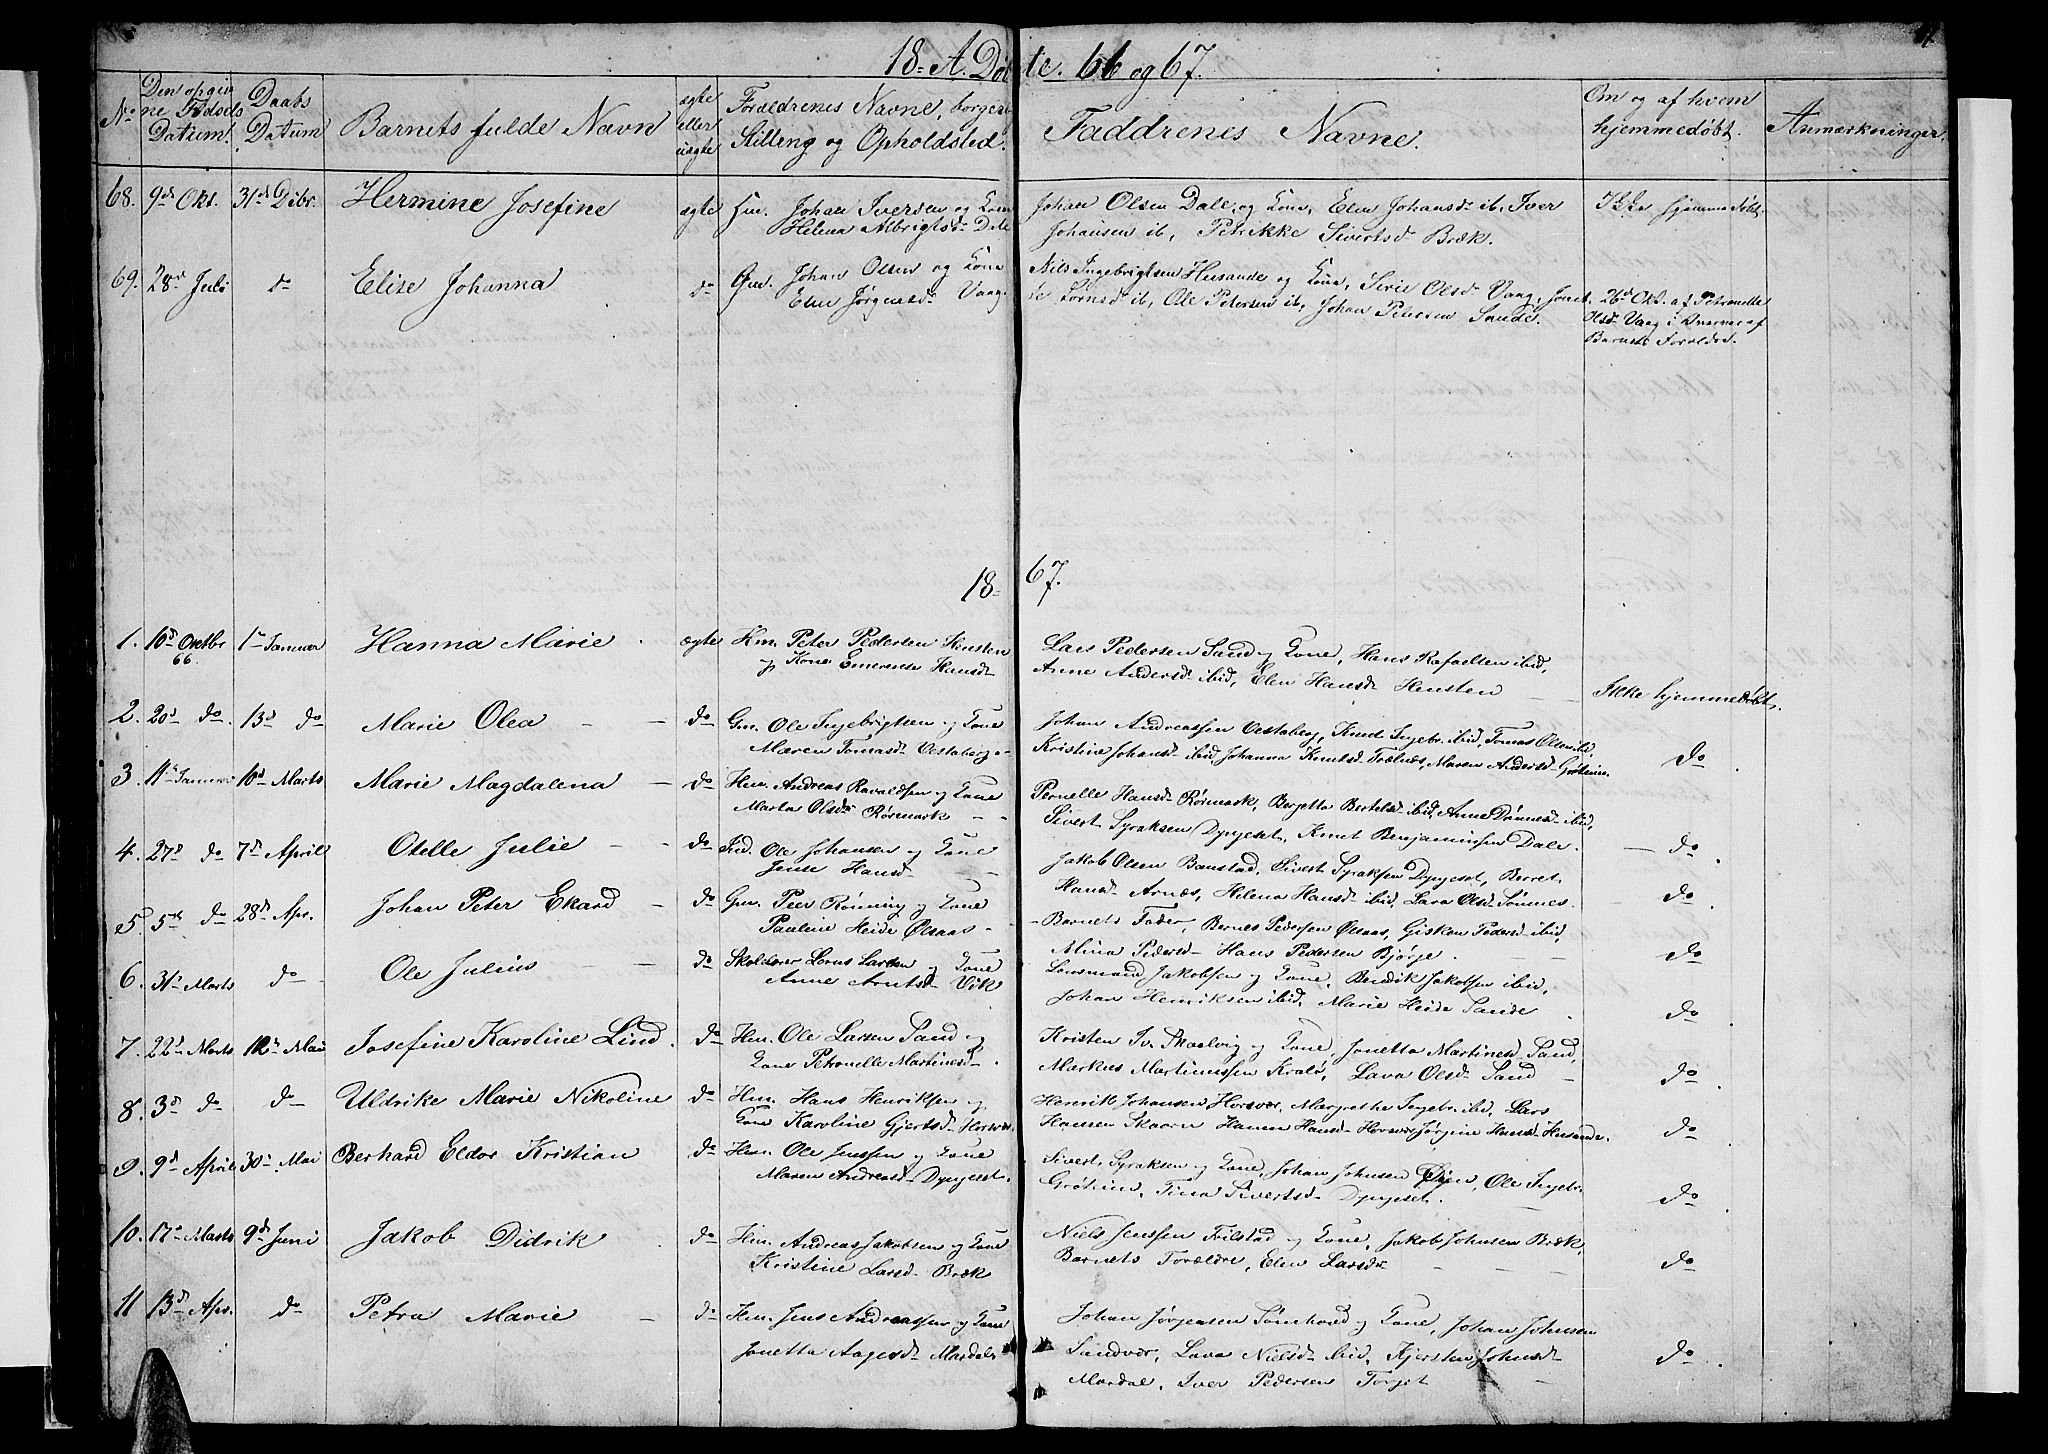 18- A. Døbte. 66 og 67.
No
Den opgivne Fødsels Datum.
Daabs Datum
Barnets fulde Navn
ægte eller uægte
Forældrenes Navne, borgerl. Stilling og Opholdsted.
Faddrenes Navne.
Om og af hvem hjemmedøbt.
Anmærkninger.
68. 9d Okt. 31d Dcbr. Hermine Josefine ægte Hm. Johan Iversen og Kone
Helena Albrigtsd- Dale
Johan Olsen Dale, og Kone, Elen Johansd- ib, Iver
Johansen ib, Petrikke Sivertsd- Bræk.
Ikke hjemmedøbt.
69. 28d Juli do Elise Johanna do Gm. Johan Olsen og Kone
Elen Jørgensd- Vaag.
Nils Ingebrigtsen Husande og Kone, Sirie Olsd- Vaag,
ib, Ole Petersen ib, Johan Petersen Sande.
26d Okt. af Petronelle
Olsd- Vaag i Nærvær af
Barnets Foreldre.
18-67.
1. 10d Oktbr 66. 1d Januar Hanna Marie ægte Hm. Peter Pedersen Hensten
og Kone Emerense Hansd-
Lars Pedersen Sand og Kone, Hans Rafaelsen ibid,
Anne Andersd- ibid, Elen Hansd- Hensten
Ikke hjemmedøbt,
2. 20d do. 13d do Marie Olea do Gm. Ole Ingebrigtsen og Kone
Maren Tomasd- Vestaberg
Johan Andreassen Vestaberg, Knut Ingebr. ibid, Tomas Olsen ibid,
Kristine Johansd- ibid, Johanna Knutsd- Trælnæs, Maren Andersd- Grøtheim.
do
3. 11d Januar 10d Marts Marie Magdalena do Hm. Andreas Ravaldsen og Kone
Marta Olsd- Rørmark
Pernelle Hansd- Rørmark, Bergetta Bertelsd- ibid, Anne Dønnesd- ibid,
Sivert Syraksen Dypgeset, Knut Benjaminsen Dale.
do
4. 27d do 7d April Otelle Julie do Ind. Ole Johansen og Kone
Jense Hansd-
Jakob Olsen Baustad, Sivert Syraksen Dypgeset, Berret
Hansd- Arnæs, Helena Hansd- ibid, Lava Olsd- Sømnes.
do
5. 5d do 28d Apr. Johan Peter Ekard do Gm. Peer Rønning og Kone
Pauline Heide Ølsaas
Barnets Fader, Bernes Pedersen Ølsaas, Gisken Pedersd- ibid,
Alina Pedersd- Hans Pedersen Bjørge.
do
6. 31d Marts do Ole Julius do Skolelærer Lorns Larsen og Kone
Anne Arntsd- Vik
Lensmand Jakobsen og Kone, Bendik Jakobsen ibid,
Johan Henriksen ibid, Marie Heide Sande
do
7. 22d Marts 12d Mai Josefine Karoline Lind. do Hm. Ole Larsen Sand og
Kone Petronelle Martinesd-
Kristen Iv. Skaelvig og Kone, Jonetta Martinesd- Sand,
Markus Martinussen Kralø, Lava Olsd- Sand
do
8. 3d do do Uldrike Marie Nikoline do Hm. Hans Henriksen og
Kone Karoline Gjertsd- Horsvær.
Henrik Johansen Horsvær, Margrethe Ingebr. ibid, Lars
Hansen Skavn Hanna Hansd- Horsvær Jørgine Hansd- Husande.
do
9. 9d April 30d Mai Berhard Eldor Kristian do Hm. Ole Jenssen og Kone
Maren Andreasd- Dypgeset.
Sivert Syraksen og Kone, Johan Johnsen Øyen, Ole Ingebr.
Grøtheim, Tina Sivertsd- Dypgeset.
do
10. 17d Marts 9d Juni Jakob Didrik do Hm. Andreas Jakobsen og Kone
Kristine Larsd- Bræk
Niels Jenssen Trilstad og Kone, Jakob Johnsen Bræk,
Barnets Forældre, Elen Larsd-
do
11 13d Apr. do Petra Marie do Hm. Jens Andreassen og Kone
Jonetta Aagesd- Mardal
Johan Jørgensen Sømhoved og Kone, Johan Johnsen
Sandvær, Lava Nielsd- ibid, Kjersten Johnsd-
Mardal, Iver Pedersen Torget
do